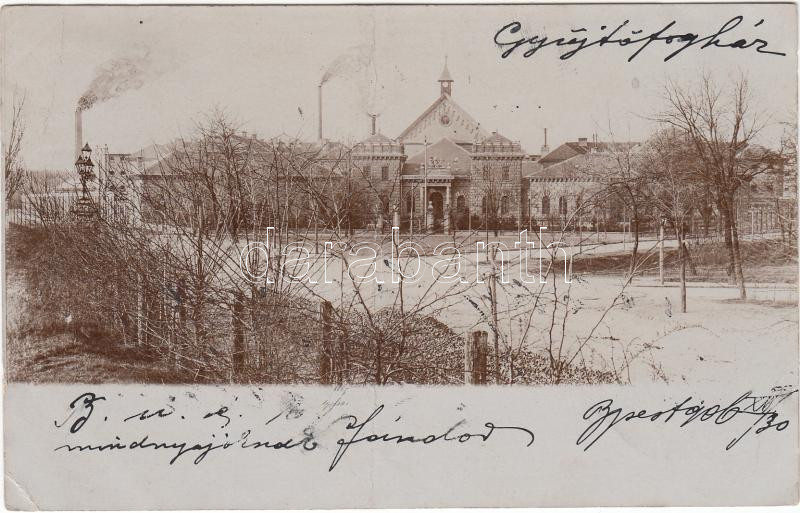 Gyüjtőfogház
darabanth
B. u. é. k.
mindnyájoknak Sándor
Bpest 906 XII/30